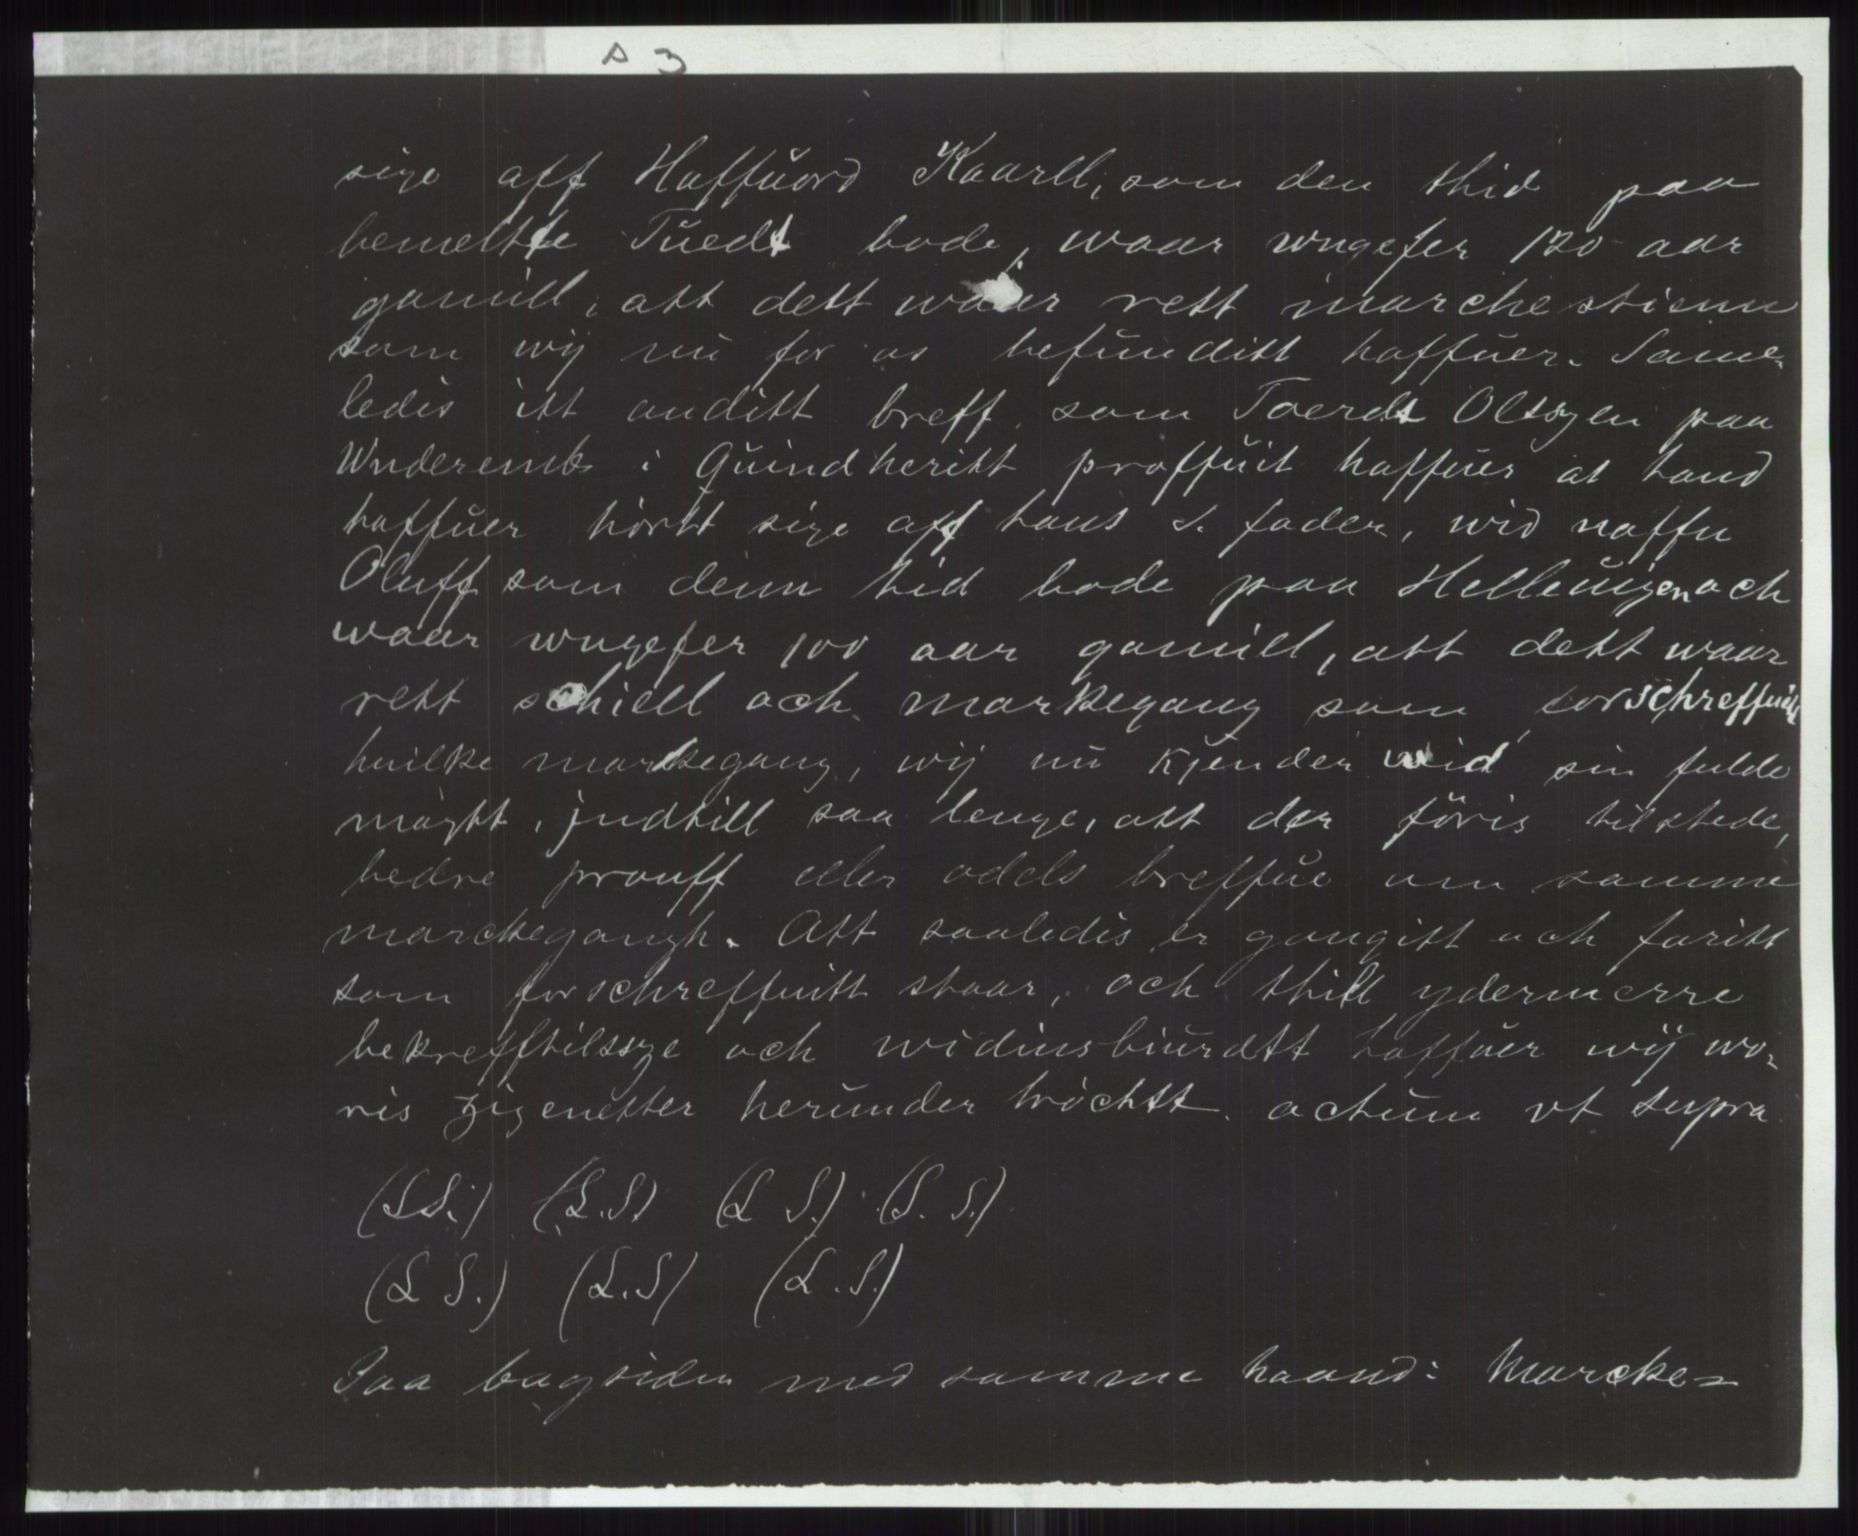 s 3
sige aff Haffuord Kaarll, som den thid paa
bemeltte Tuedt bode, waar wngefer 120 aar
gamill, att dett waar rett marchestienn
som wij nu for os befunditt haffuer. Same-
ledis itt anditt breff, som Toerdt Olszen paa
Wnderenk i Quindheritt proffuit haffuer at hand
haffuer hörtt sige aff hans S. fader, wid naffn
Oluff som denn tid bode paa Helleuigen och
waar wngefer 100 aar gamill, att dett waar
rett schiell och markegang som forschreffuit
huilke markegang, wij nu kjender wid sin fulde
magtt, jndtill saa lenge, att der föris tilstede,
bedre prouff eller odels breffue om samme
marckegangh. Att saaledis er gangitt och faritt
som forschreffuitt staar, och thill ydermerre
bekrefftilssze och widinsbiurdtt haffuer wij wo-
ris zigenetter herunder tröchtt. actum vt supra
(L.S.) (L.S) (L S.) (L. S.)
(L S.) (L.S) (L.S.)
Paa bagsiden med samme haand: Marcke-